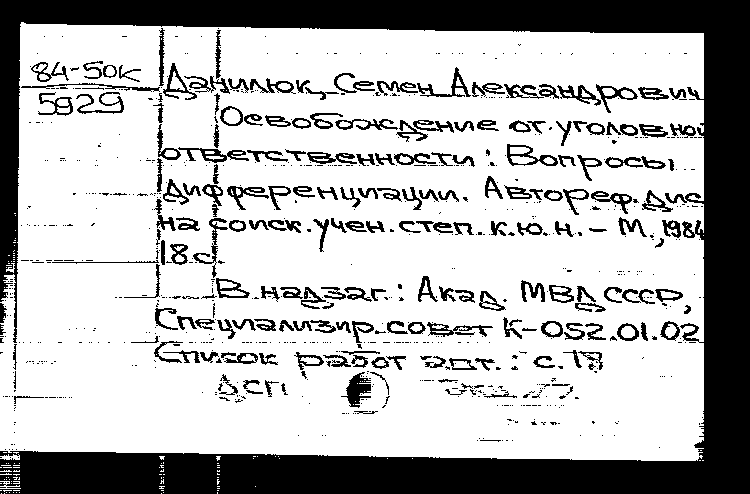 84-50к
5929
Данилюк, Семен Александрович
Освобождение от уголовной
ответственности: Вопросы
дифференциации. Автореф. дис
на соиск. учен. степ. к.ю.н. - М., 1984
18 с.
В надзаг.: Акад. МВД СССР,
Специализир. совет К-052.01.02
Список работ авт.: с. 18
ДСП